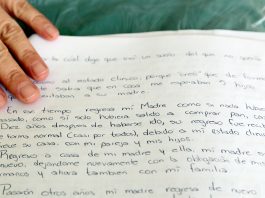 la cual dije que mi un sueño del que no quería
al estado clínico, porque creo que de forma
sabía que en casa me esperaban 2 hijos
a su madre.
En ese tiempo regresa mi Madre como si nada hubiera
pasado, como si solo hubiera salido a comprar pan, con
Diez años después de haberse ido, su regreso fue
de forma normal (casi por todos), debido a mi estado clínico
su casa. con mi pareja y mis hijos.
Regreso a casa de mi madre y ella, mi madre se
nuevo, dejándome nuevamente con la obligación de mis
hermanos y ahora tambien con mi familia.
Pasaron otros años mi madre regresa de nuevo